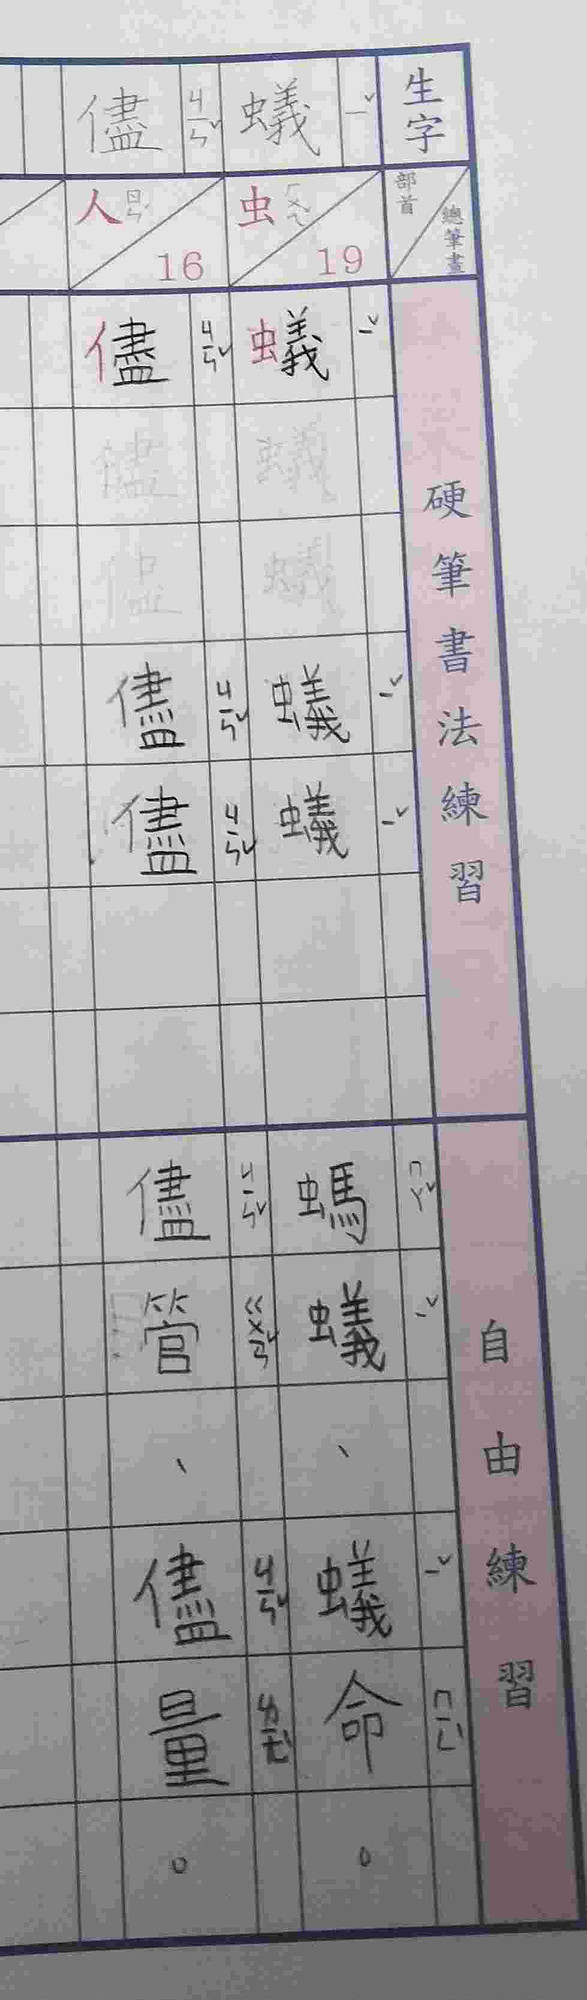 生字
部首
總筆畫
硬筆書法練習
自由練習
ㄧˇ
蟻
虫
ㄏㄨㄟˇ
19
蟻 ㄧˇ
蟻
蟻
蟻 ㄧˇ
蟻 ㄧˇ
螞 ㄇㄚˇ
蟻 ㄧˇ
、
蟻 ㄧˇ
命 ㄇㄧㄥˋ
。
ㄐㄧㄣˇ
儘
人
ㄖㄣˊ
16
儘 ㄐㄧㄣˇ
儘
儘
儘 ㄐㄧㄣˇ
儘 ㄐㄧㄣˇ
儘 ㄐㄧㄣˇ
管 ㄍㄨㄢˇ
、
儘 ㄐㄧㄣˇ
量 ㄌㄧㄤˋ
。